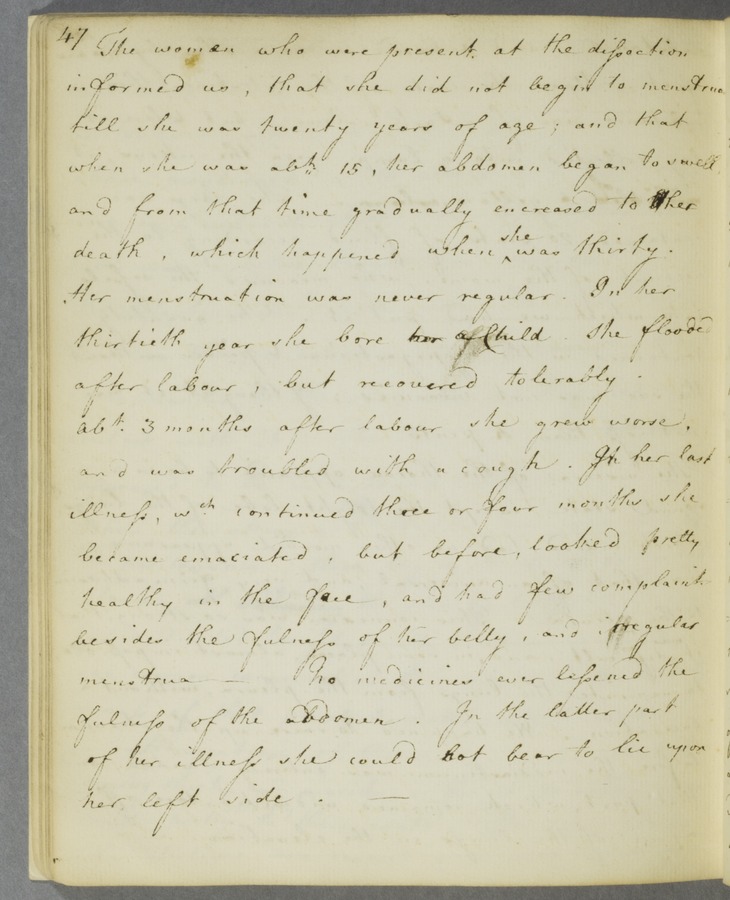 47 The women who were present at the dissection
informed us, that she did not begin to menstrua
till she was twenty years of age; and that
when she was abt. 15, her abdomen began to swell,
and from that time gradually encreased to her
death, which happened when she was thirty.
Her menstruation was never regular. In her
thirtieth year she bore a Child. She flooded
after labour, but recovered tolerably.
abt. 3 months after labour she grew worse,
and was troubled with a cough. In her last
illness, wch continued three or four months she
became emaciated, but before, looked pretty
healthy in the face, and had few complaints
besides the fulness of her belly, and irregular
menstrua — No medicines ever lessened the
fulness of the abdomen. In the latter part
of her illness she could not bear to lie upon
her left side. —